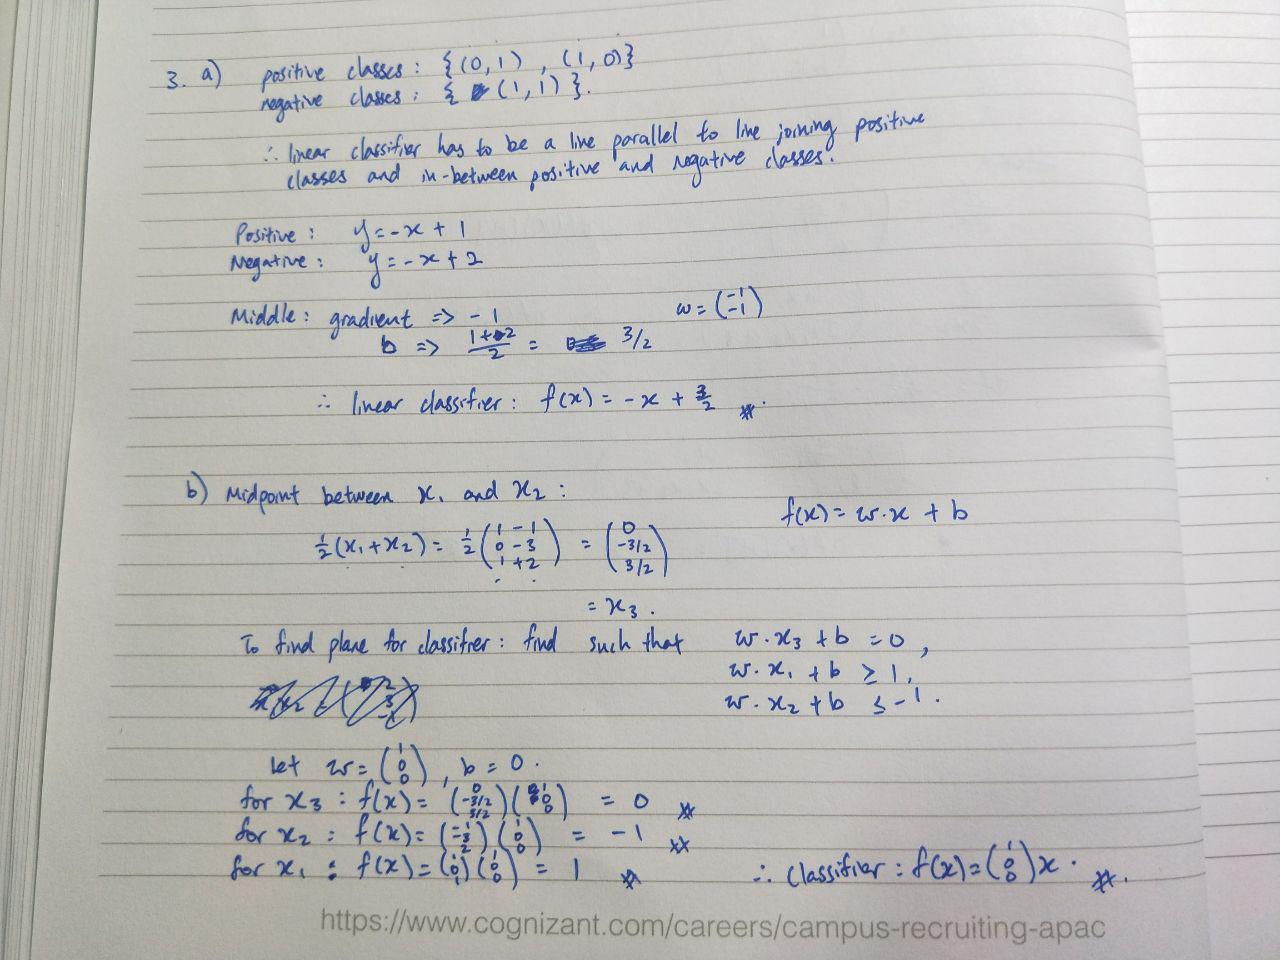 3. a) positive classes: {(0,1), (1,0)}
negative classes: {(1,1)}.
∴ linear classifier has to be a line parallel to line joining positive
classes and in-between positive and negative classes.
Positive: y = -x + 1
Negative: y = -x + 2
Middle: gradient => -1 w = (-1 -1)
b => 1+2/2 = 3/2
∴ linear classifier: f(x) = -x + 3/2
b) Midpoint between x₁ and x₂:
f(x) = w·x + b
½(x₁+x₂) = ½(1-1 0-3 1+2) = (0 -3/2 3/2)
= x₃.
To find plane for classifier: find such that w·x₃ + b = 0,
w·x₁ + b ≥ 1,
w·x₂ + b ≤ -1.
Let w = (1 0 0), b = 0.
for x₃: f(x) = (0 -3/2 3/2)(1 0 0) = 0
for x₂: f(x) = (-1 -3 2)(1 0 0) = -1
for x₁: f(x) = (1 0 1)(1 0 0) = 1
∴ classifier: f(x) = (1 0 0)x.
https://www.cognizant.com/careers/campus-recruiting-apac